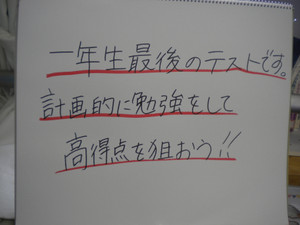 一年生最後のテストです。
計画的に勉強をして
高得点を狙おう!!